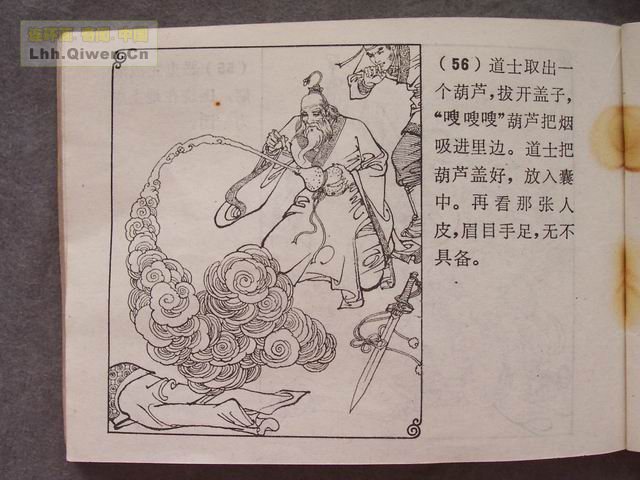 连环画.图问.中国
Lhh.Qiwen.Cn
(56) 道士取出一
个葫芦，拔开盖子，
“嗖嗖嗖”葫芦把烟
吸进里边。道士把
葫芦盖好，放入囊
中。再看那张人
皮，眉目手足，无不
具备。